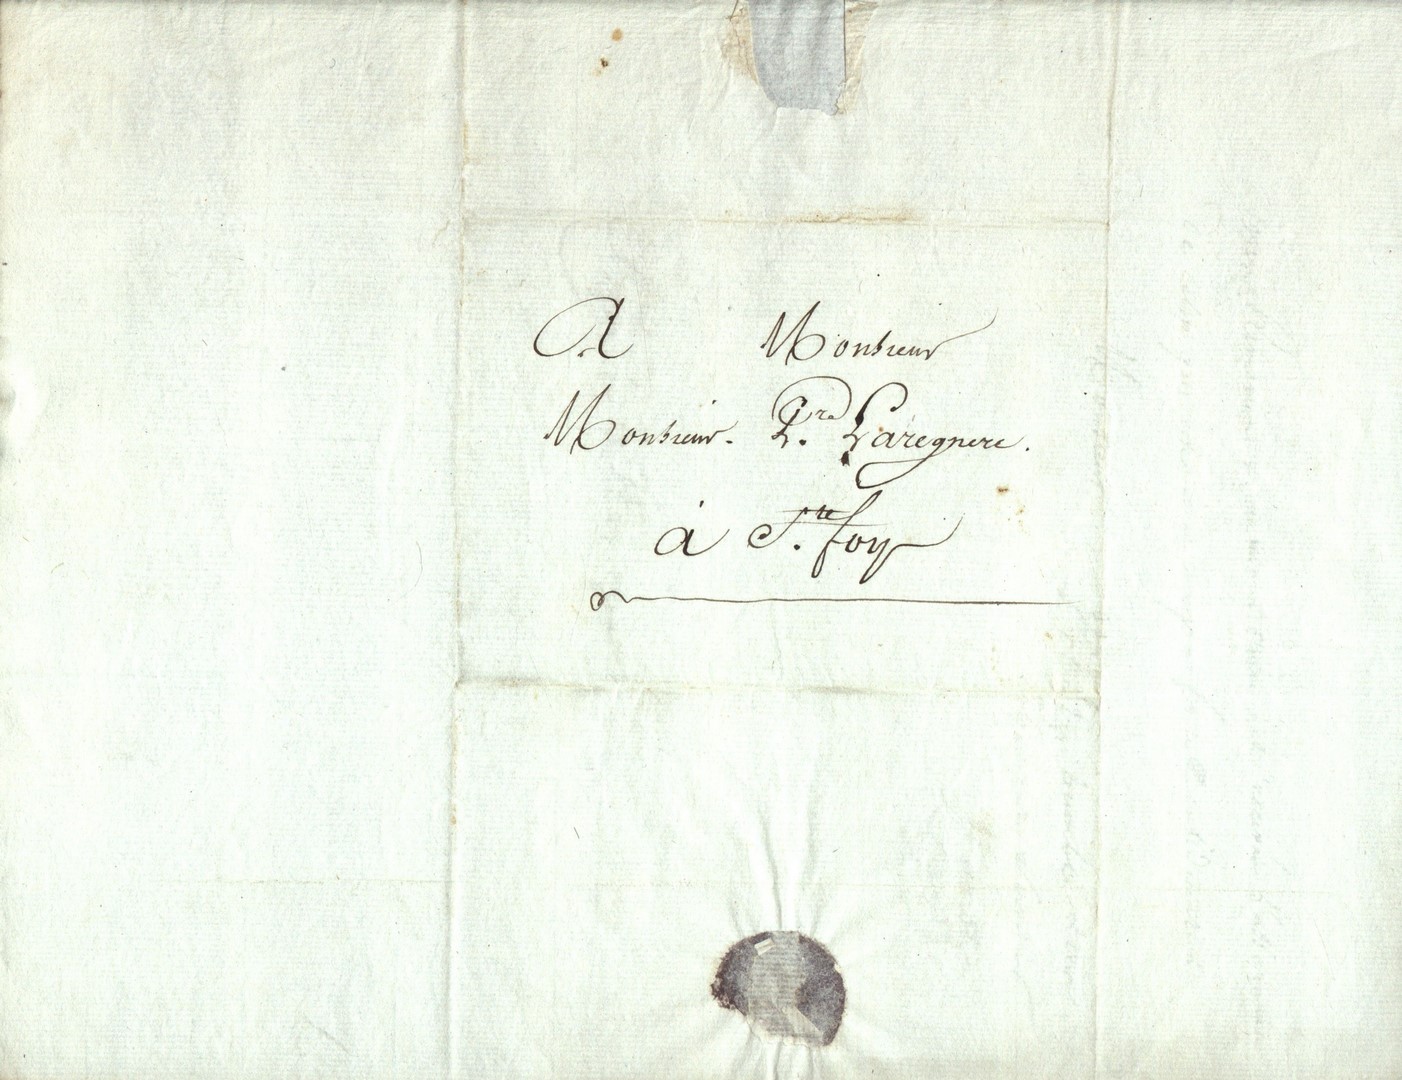 A Monsieur
Monsieur. P.re Laregnere.
à S.te foy